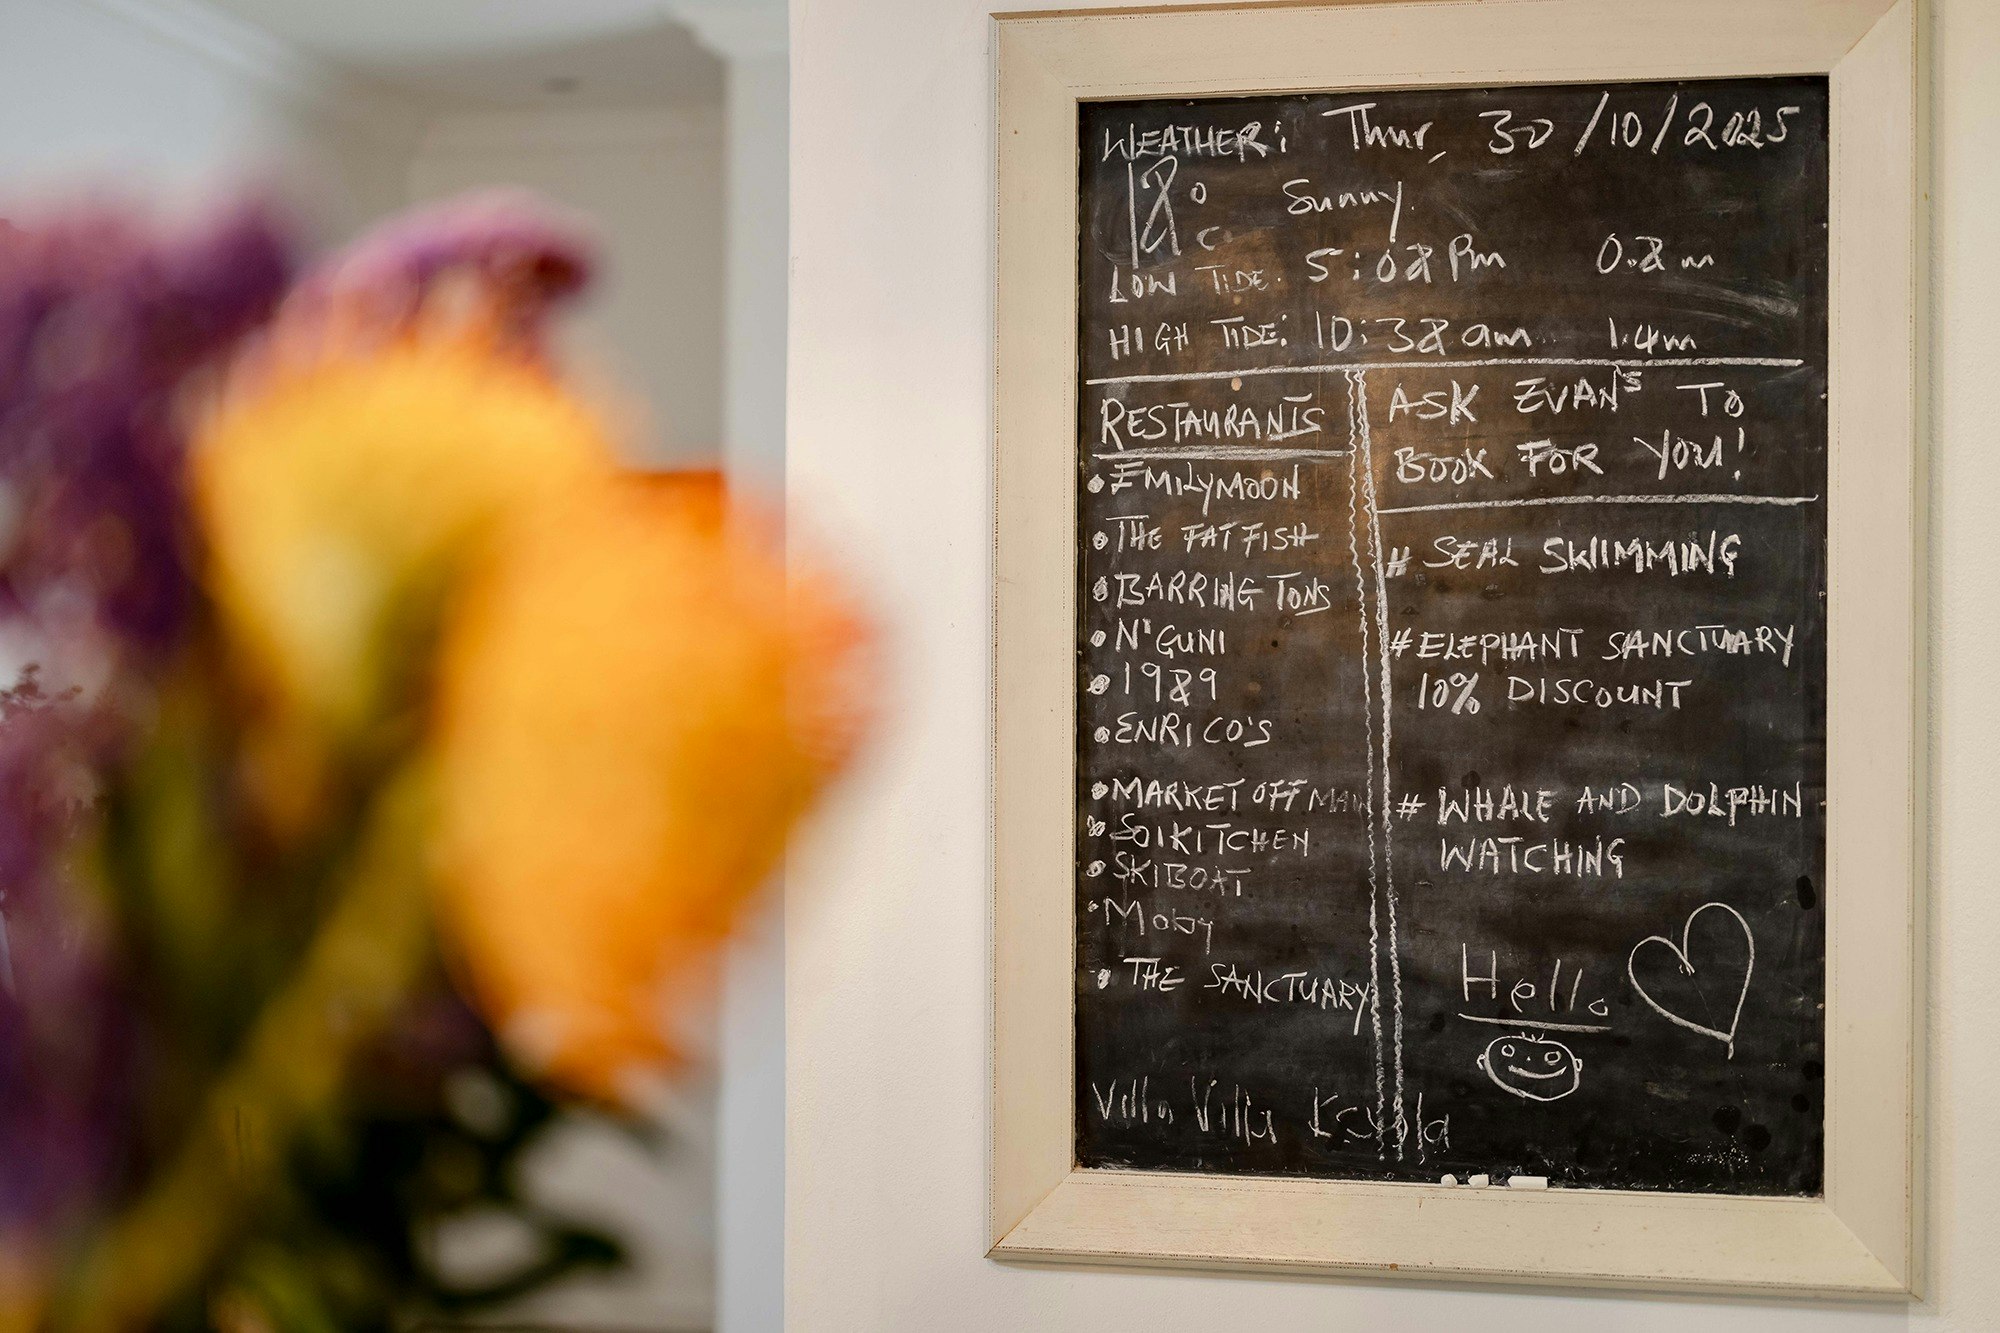 WEATHER: Thur, 30/10/2025
18°C Sunny.
LOW TIDE: 5:08 Pm 0.8m
HIGH TIDE: 10:38 am 1.4m
RESTAURANTS
• EMILYMOON
• THE FAT FISH
• BARRINGTONS
• N'GUNI
• 1989
• ENRICO'S
• MARKET OFF MAIN
• SOIKITCHEN
• SKIBOAT
• Moby
• THE SANCTUARY
Villa Villa
ASK EVAN'S TO
BOOK FOR YOU!
# SEAL SWIMMING
# ELEPHANT SANCTUARY
10% DISCOUNT
# WHALE AND DOLPHIN
WATCHING
Hello